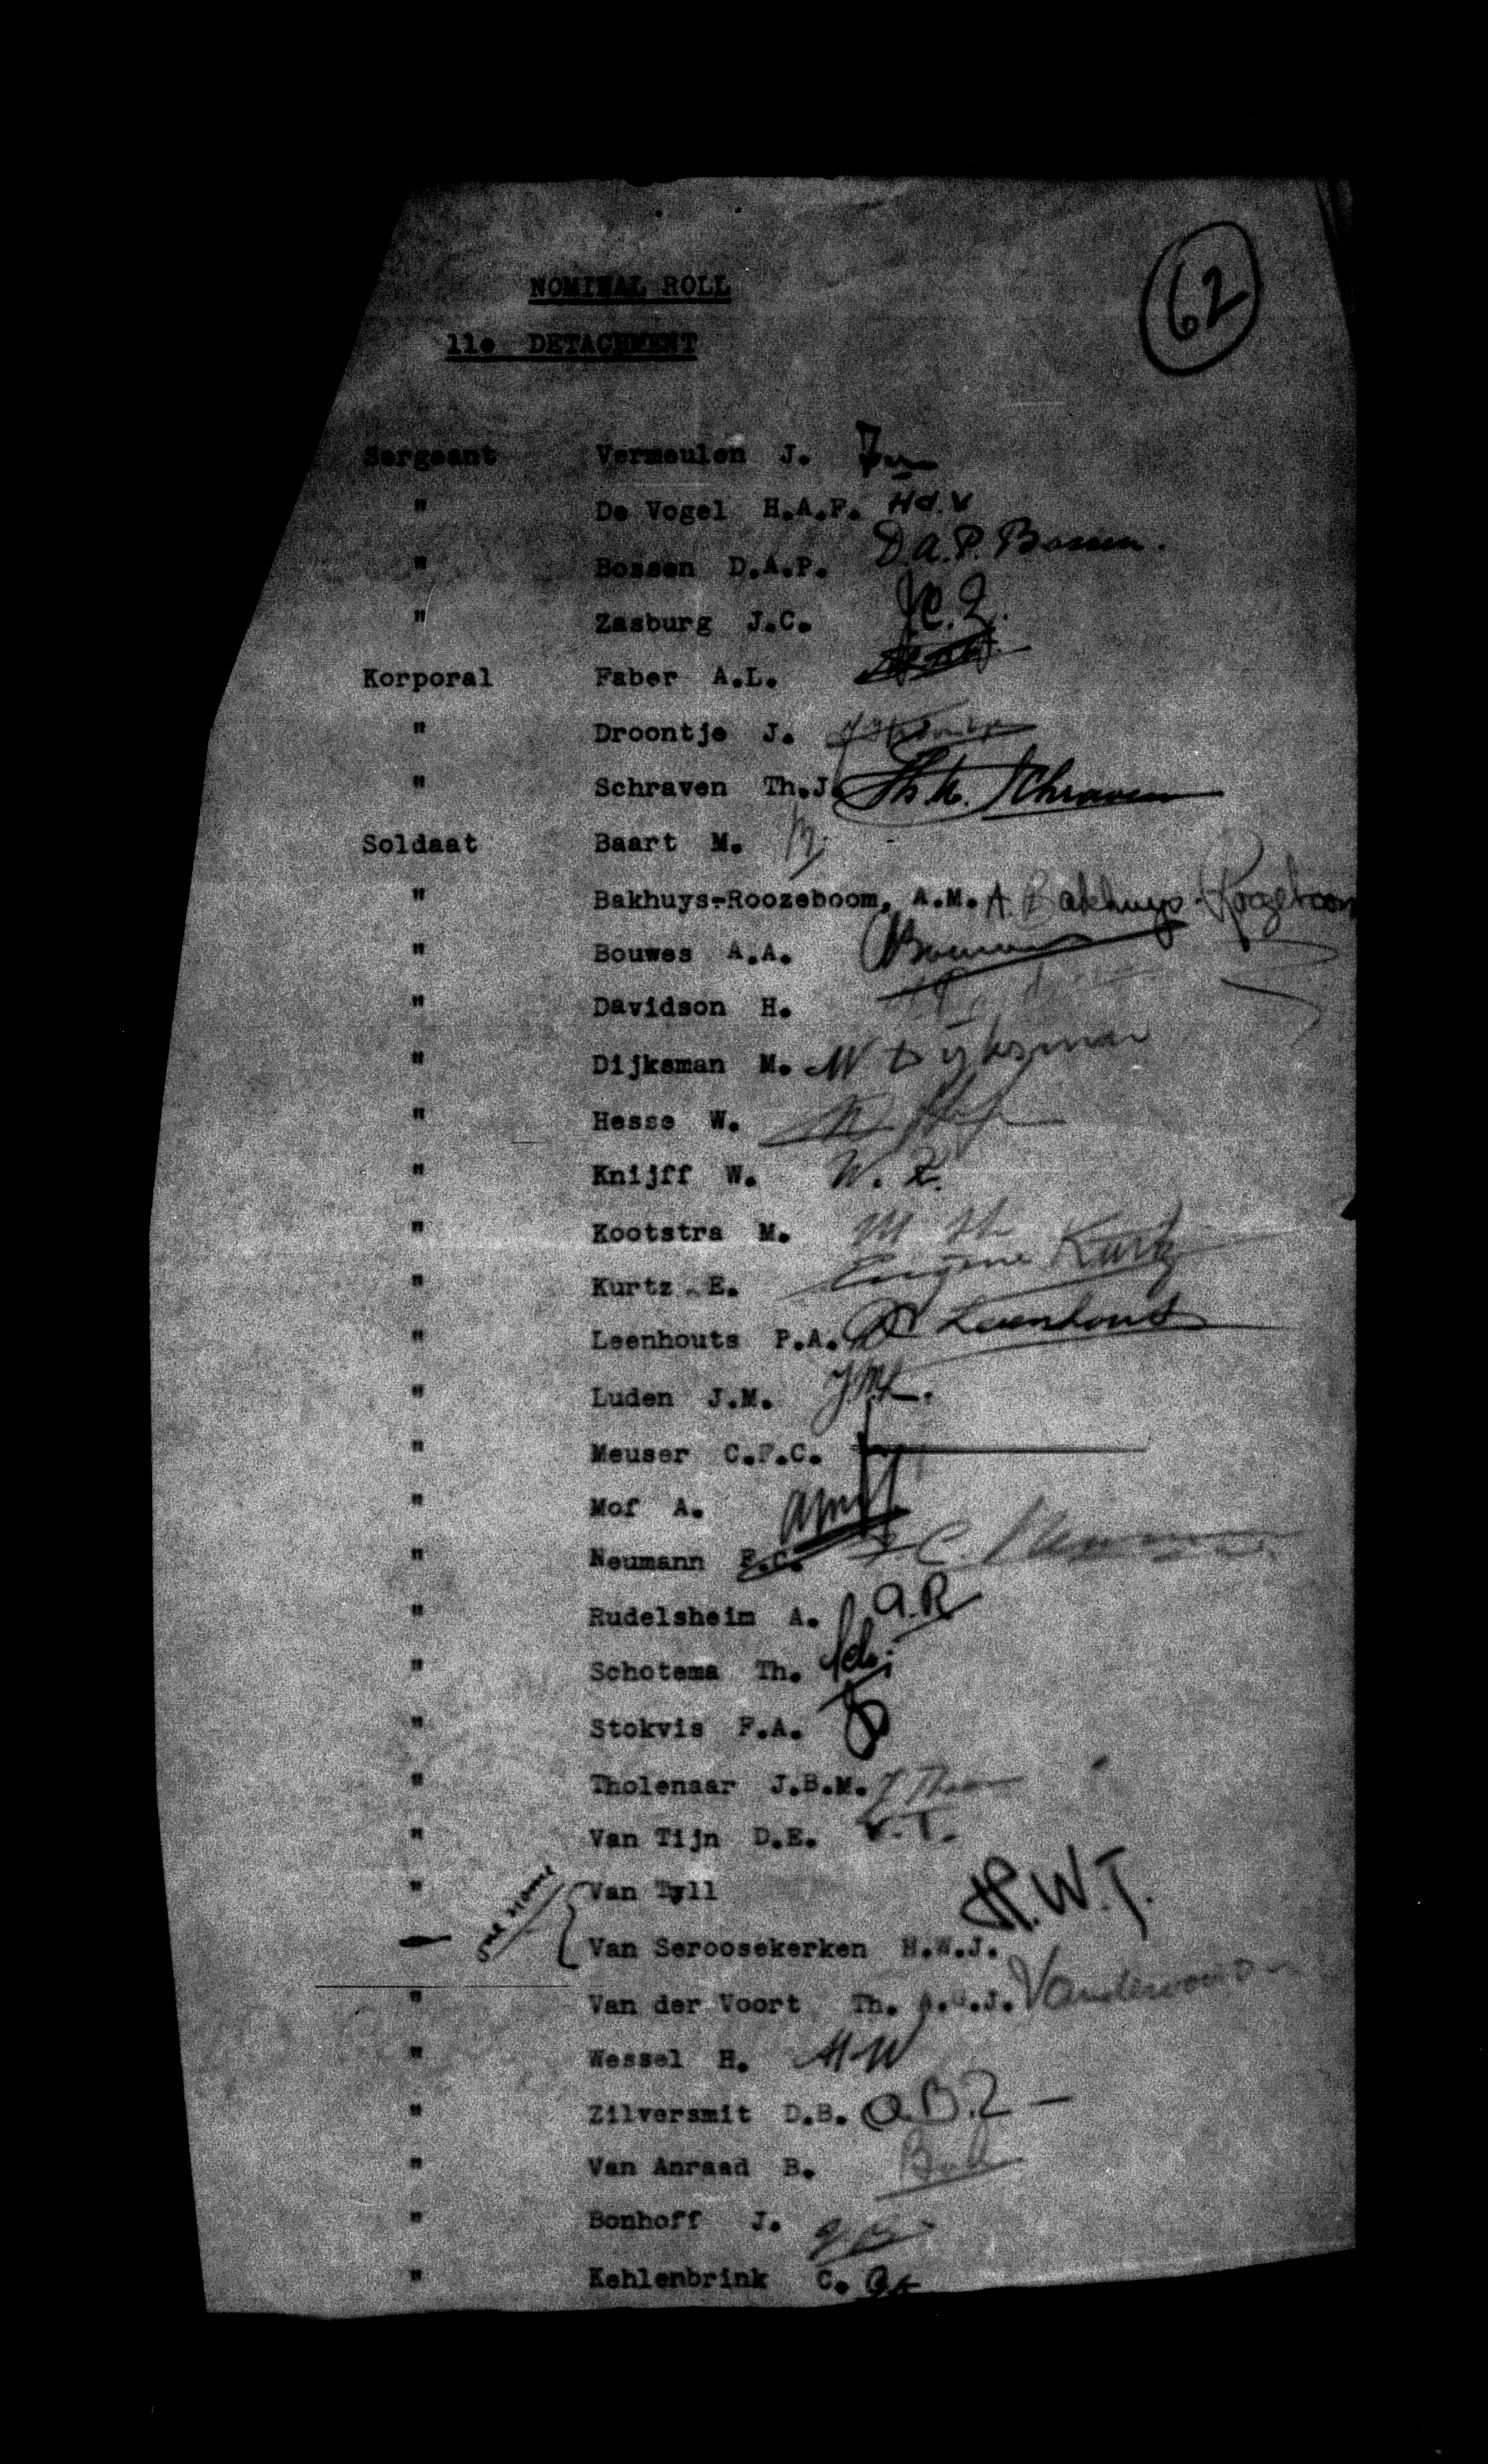 62
NOMINAL ROLL
11e DETACHMENT
Sergeant Vermeulen J.
" De Vogel H.A.F. Hd.V
" Bossen D.A.P. D.A.P. Bossen.
" Zasburg J.C. J.C.Z.
Korporal Faber A.L.
" Droontje J.
" Schraven Th.J. Schraven
Soldaat Baart M.
" Bakhuys-Roozeboom, A.M. A. Bakhuys-Roozeboom
" Bouwes A.A.
" Davidson H.
" Dijksman M. M Dijksman
" Hesse W.
" Knijff W. W. K.
" Kootstra M.
" Kurtz E. Eugène Kurtz
" Leenhouts P.A. Leenhouts
" Luden J.M. J.M.L.
" Meuser C.F.C.
" Mof A. AMof
" Neumann F.C. F.C. Neumann
" Rudelsheim A. A.R
" Schotema Th. Sch.
" Stokvis F.A.
" Tholenaar J.B.M.
" Van Tijn D.E. V.T.
" Van Tyll
one name Van Seroosekerken H.W.J. H.W.J.
" Van der Voort Th. J. Vandervoort
" Wessel H. HW
" Zilversmit D.B. D.B.Z
" Van Anraad B.
" Bonhoff J.
" Kehlenbrink C.